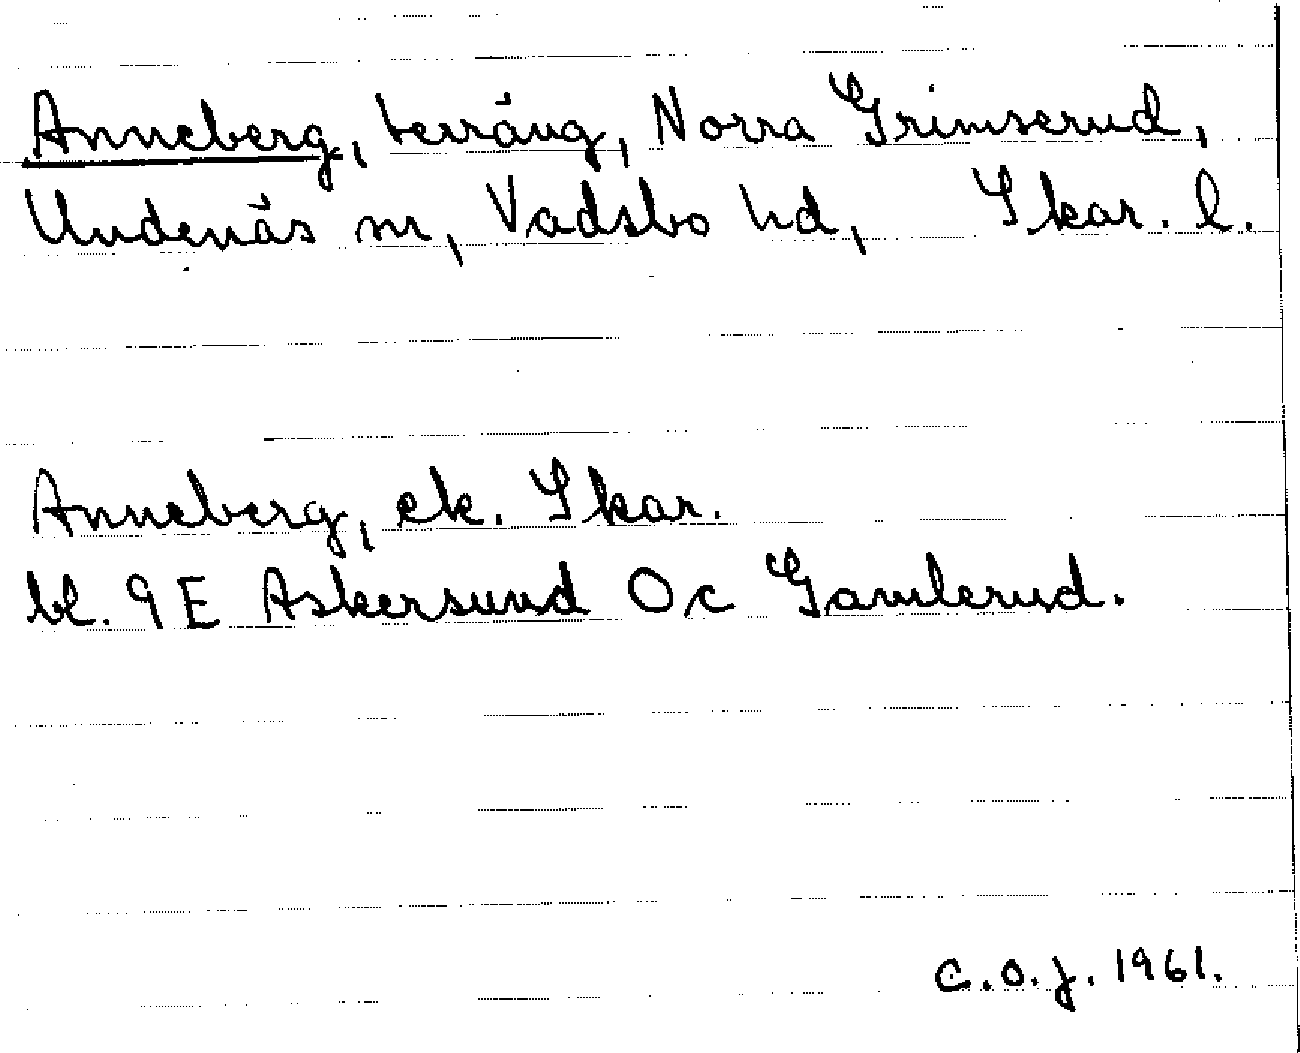 Anneberg, terräng, Norra Grimserud,
Undenäs sn, Vadsbo hd, Skar. l.
Anneberg, ek. Skar.
bl. 9E Askersund Oc Gamlerud.
C.O.J. 1961.